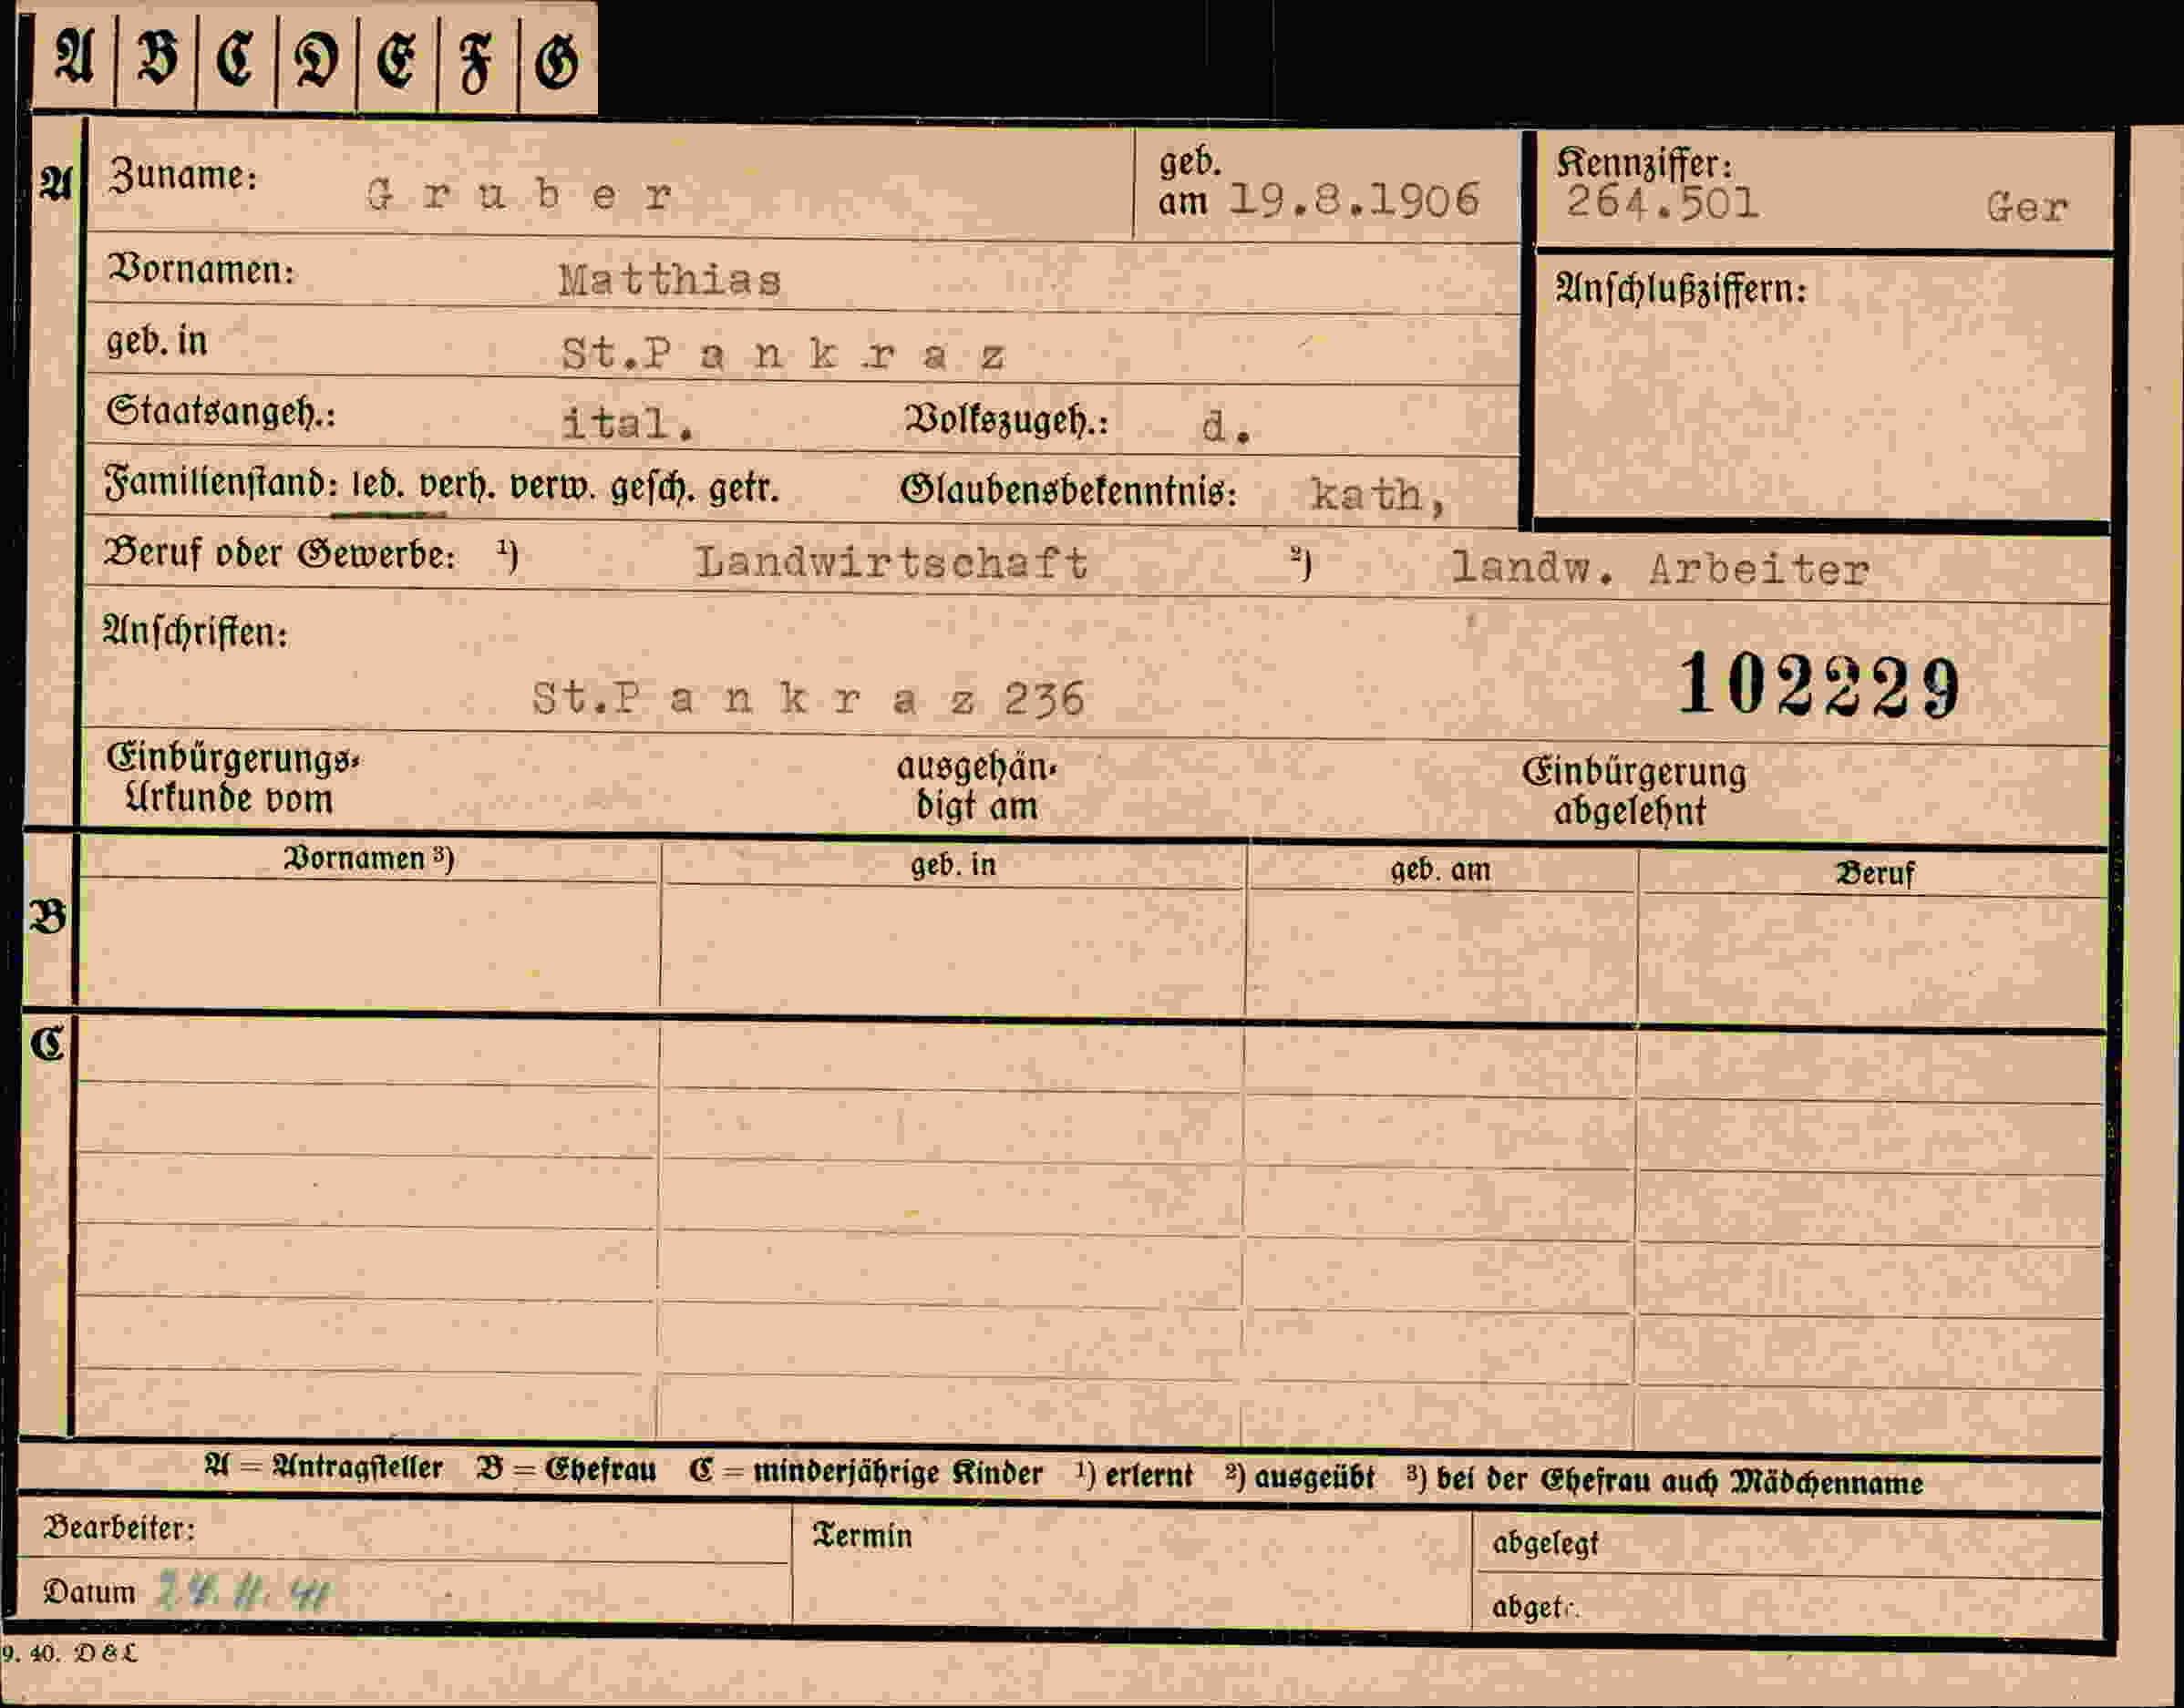 A B C D E F G
A Zuname: Gruber geb. am 19.8.1906 Kennziffer: 264.501 Ger
Vornamen: Matthias Anschlußziffern:
geb. in St.Pankraz
Staatsangeh.: ital. Volkszugeh.: d.
Familienstand: led. verh. verw. gesch. getr. Glaubensbekenntnis: kath,
Beruf oder Gewerbe: ¹) Landwirtschaft ²) landw. Arbeiter
Anschriften:
St.Pankraz 236 102229
Einbürgerungs- ausgehän- Einbürgerung
Urkunde vom digt am abgelehnt
Vornamen ³) geb. in geb. am Beruf
B
C
A = Antragsteller B = Ehefrau C = minderjährige Kinder ¹) erlernt ²) ausgeübt ³) bei der Ehefrau auch Mädchenname
Bearbeiter: Termin abgelegt
Datum 24. 11. 41 abgetr.
9. 40. D & L